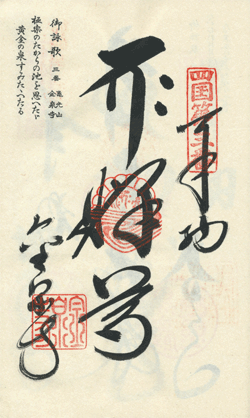 四国第三番
奉納
釋尊
御詠歌 三番 亀光山 金泉寺
極楽のたからの池を思へたゞ
黄金の泉すみたゝへたる
金泉寺